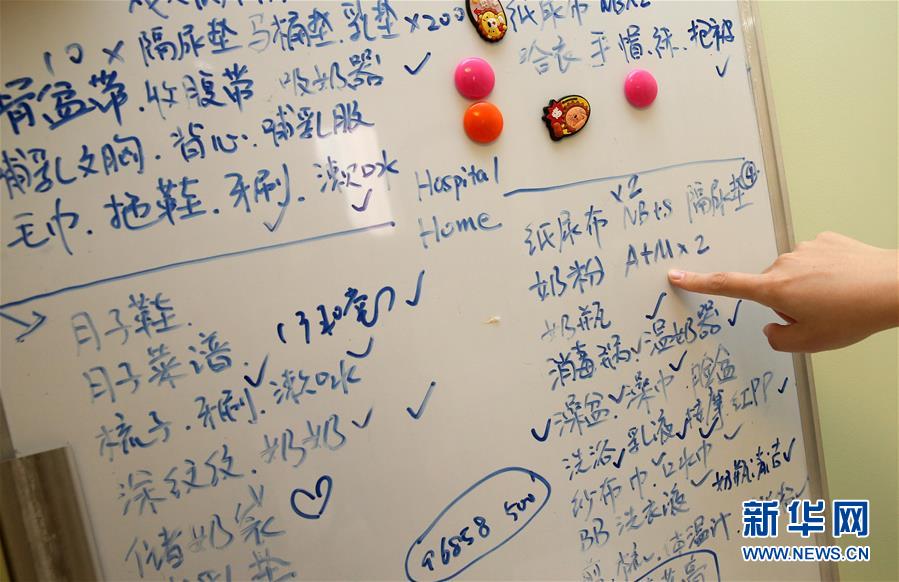 10 × 隔尿垫 马桶垫.乳垫×200
骨盆带.收腹带 吸奶器
哺乳文胸.背心.哺乳服
毛巾.拖鞋.牙刷.漱口水
纸尿布 NB×2
哈衣 手帽.袜.抱被
Hospital
Home
月子鞋.
月子菜谱.
梳子.牙刷.漱口水
奶奶
储奶袋
96858 500
纸尿布 ×2 NB+S 隔尿垫④
奶粉 A+M×2
奶瓶
消毒锅 温奶器
澡盆.澡巾.脸盆
洗浴 乳液 按摩 红PP
纱布巾.口水巾 奶瓶清洁
BB洗衣液
新华网
WWW.NEWS.CN